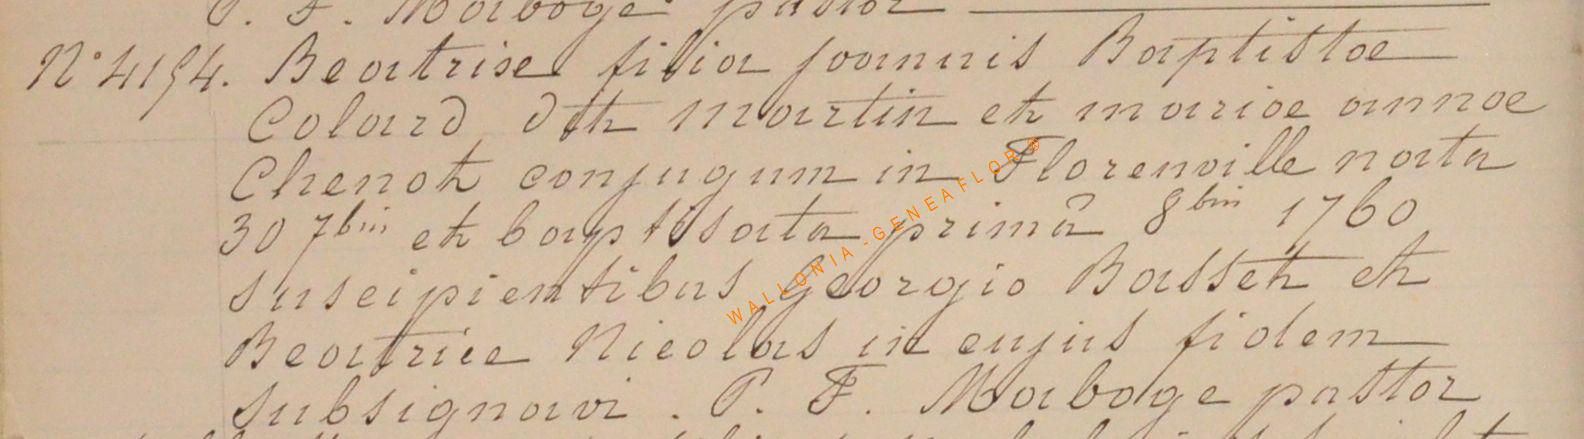 P. F. Maboge pastor
N° 4154. Beatrise filia joannis Baptistae
Colard dit Martin et mariae annae
Chenot conjugum in Florenville nata
30 7bris et baptisata primâ 8bris 1760
suscipientibus Georgio Basset et
Beatrice Nicolas in cujus fidem
subsignavi. P. F. Maboge pastor
WALLONIA-GENEAFLOR®